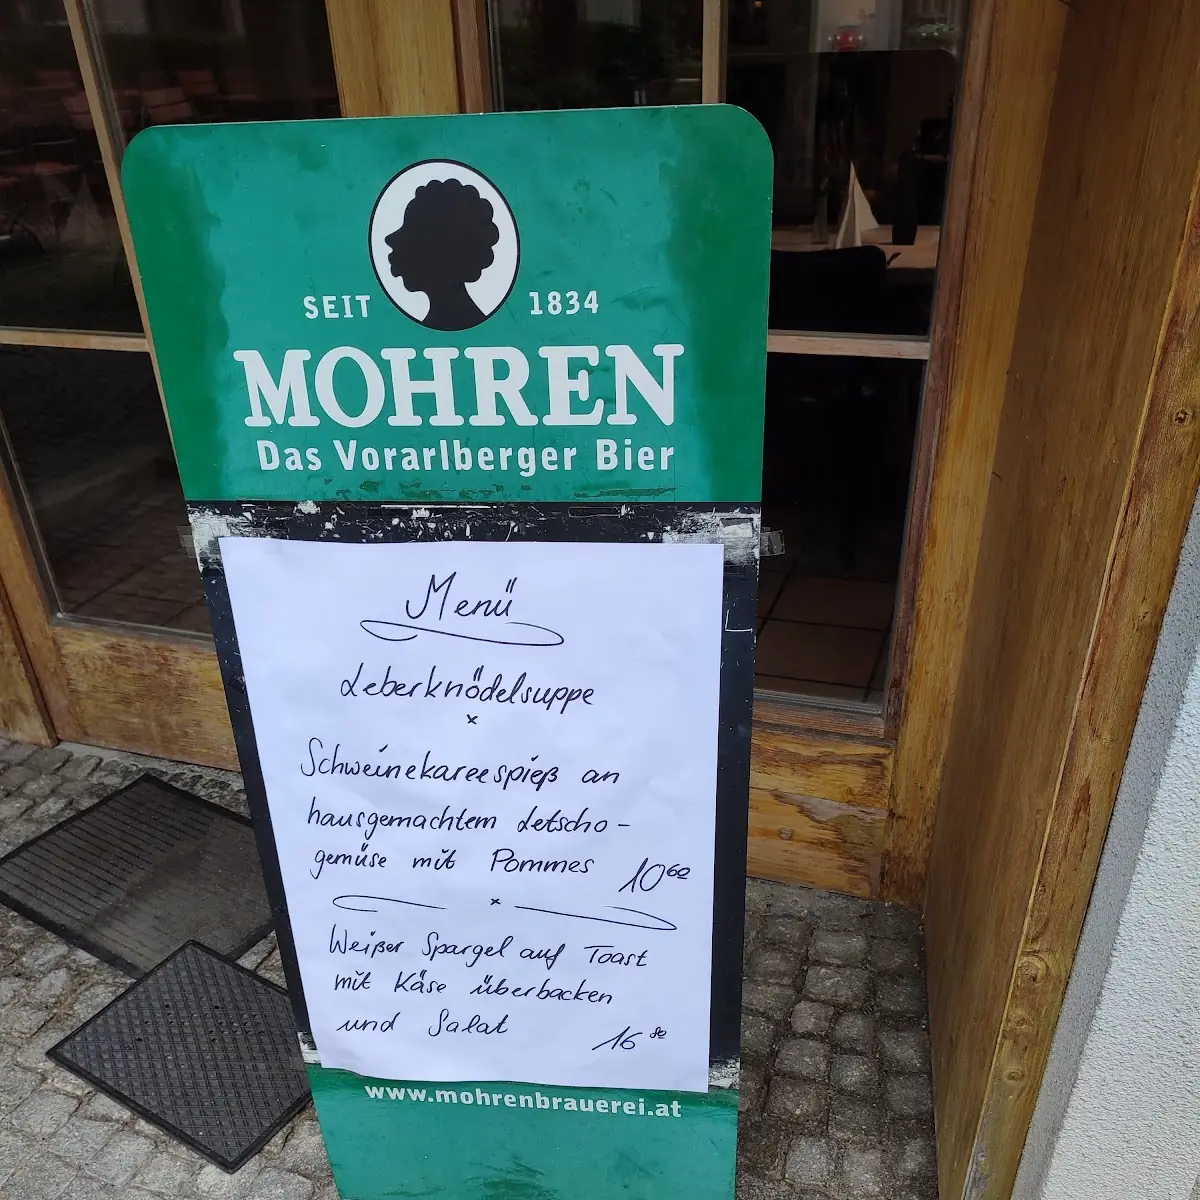 SEIT 1834
MOHREN
Das Vorarlberger Bier
Menü
Leberknödelsuppe
x
Schweinekareespieß an
hausgemachtem Letscho-
gemüse mit Pommes 10 60
x
Weißer Spargel auf Toast
mit Käse überbacken
und Salat 16 80
www.mohrenbrauerei.at